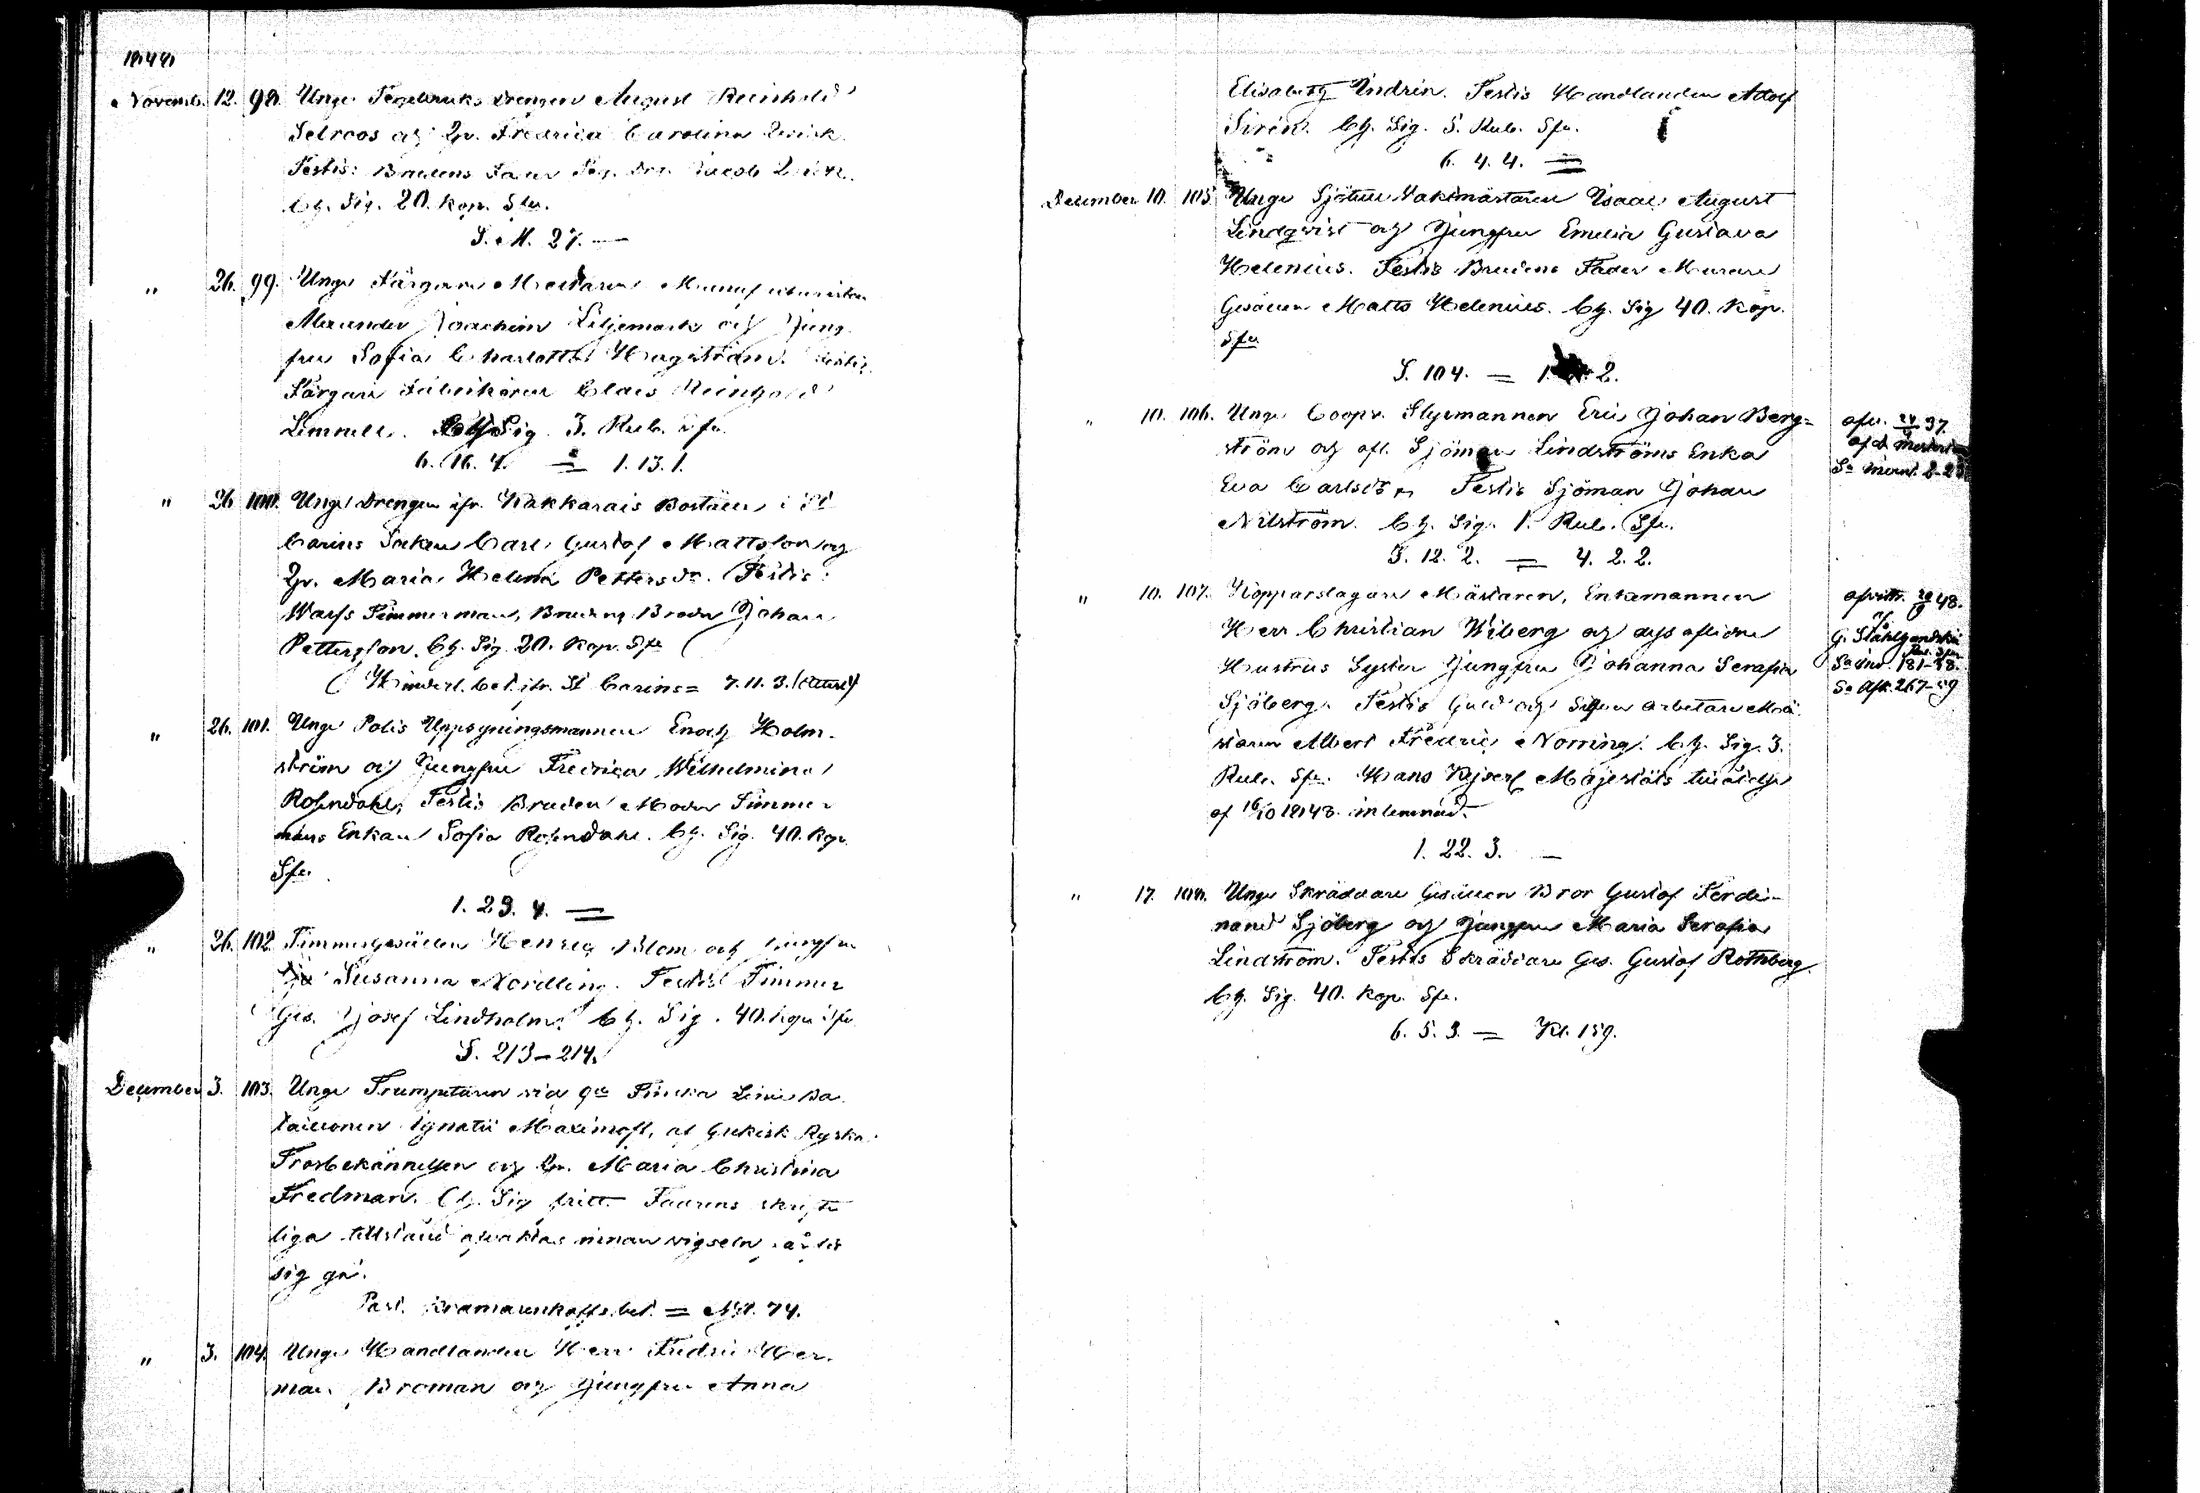 1848
Novemb. 12. 98. Unge Tegelbruks drengen August Reinhold
Selroos och Pig. Fredrica Carolina Qvick.
Testis: Brudens Fader Teg. Dr. Jacob Qvick.
Ch. Sig. 20. kop. Sfr.
S. M. 27. —
" 26. 99. Unge Färgare Mästaren
Alexander Joachim Liljemark och Jung-
fru Sofia Charlotta Hagström. Testis
Färgare Fabrikören Claes Reinhold
Limnell. Ch. Sig. 3. Rub. Sfr.
6. 16. 4. = 1. 13. 1.
" 26 100. Unge Drengen ifr. Kakkarais Boställe i St
Carins Socken Carl Gustaf Mattsson och
Pig. Maria Helena Pettersdr. Testis:
Warfs Timmerman, Brudens Broder Johan
Pettersson. Ch. Sig. 20. kop. Sfr
Hinderl. bet. ifr. St Carins = 7. 11. 3.
" 26. 101. Unge Polis Uppsyningsmannen Enoch Holm-
ström och Jungfru Fredrica Wilhelmina
Rosendahl. Testis Bruden Moder Timmer-
mans Enkan Sofia Rosendahl. Ch. Sig. 40. kop.
Sfr.
1. 23. 4. =
" 26. 102. Timmergesällen Henric Blom och Jungfru
Susanna Nordling. Testis Timmer
Ges. Josef Lindholm. Ch. Sig. 40. kop. Sfr
S. 213-214.
December 3. 103. Unge Trumpetaren vid 9de Finska Linie Ba-
taillonen Ignatii Maximoff, af Grekisk Ryska
Trosbekännelsen och Pig. Maria Christina
Fredman. Ch. Sig fritt. Faderns skrift-
liga tillstånd afvaktas innan vigseln får för
sig gå.
Past. bet. = 74.
" 3. 104. Unge Handlanden Herr Fredric Her-
man Broman och Jungfru Anna
Elisabeth Indrén. Testis Handlanden Adolf
Sirén. Ch. Sig. 5. Rub. Sfr.
6. 4. 4. =
December 10. 105 Unge Sjötull Vaktmästaren Isaac August
Lindqvist och Jungfru Emelia Gustava
Helenius. Testis Brudens Fader Murare
Gesällen Matts Helenius. Ch. Sig 40. kop.
Sfr
S. 104. = 1. 2.
" 10. 106. Unge Coopv. Styrmannen Eric Johan Berg-
ström och afl. Sjöman Lindströms Enka
Eva Carlsdr. Testis Sjöman Johan
Nilström. Ch. Sig. 1. Rub. Sfr.
3. 12. 2. = 4. 2. 2.
" 10. 107. Kopparslagare Mästaren, Enkemannen
Herr Christian Wiberg och dess aflidne
Hustrus Syster Jungfru Johanna Serafia
Sjöberg. Testis Guld och Silfver arbetare Mä-
staren Albert Fredric Norring. Ch. Sig. 3.
Rub. Sfr. Hans Kejserl Majestäts tillåtelse
af 16/10 1848. inlemnad.
1. 22. 3. —
afvittr. 48.
" 17. 108. Unge Skräddare Gesällen Bror Gustaf Ferdi-
nand Sjöberg och Jungfru Maria Serafia
Lindström. Testis Skräddare Ges. Gustaf Rothberg.
Ch. Sig. 40. kop. Sfr.
6. 5. 3. = Kl. 159.